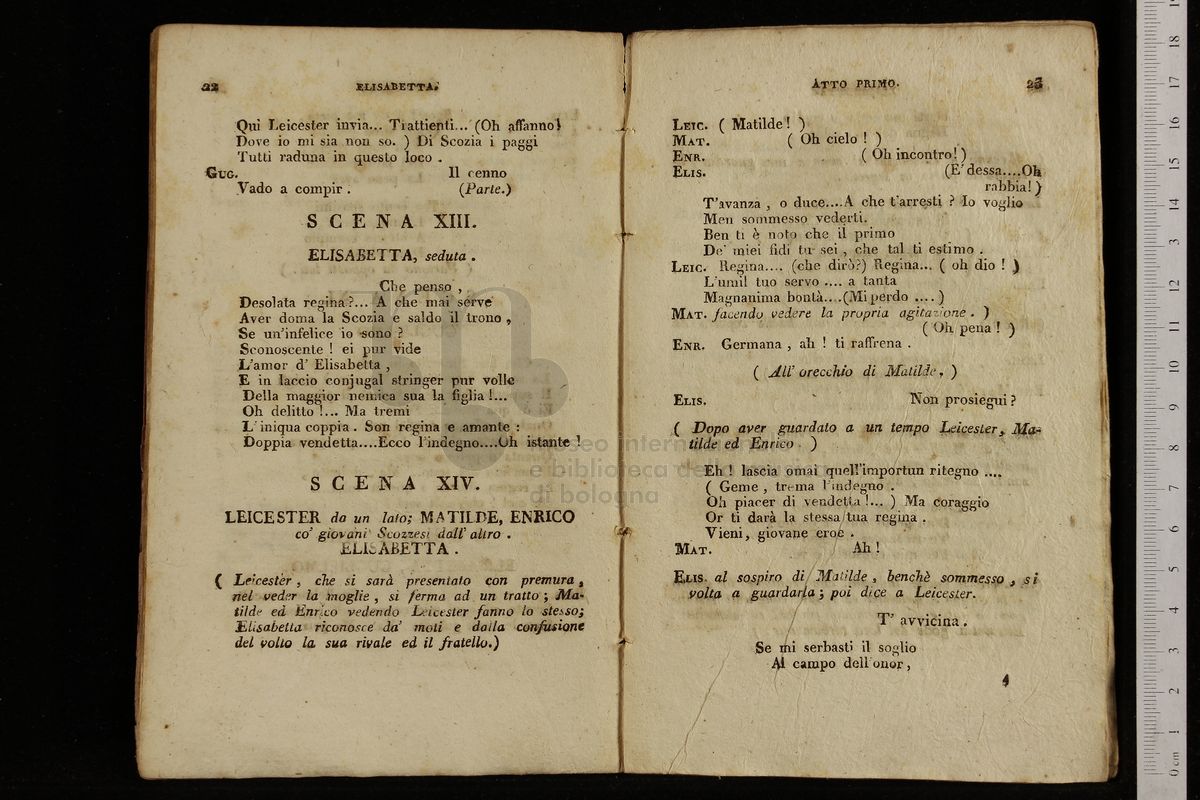 22 ELISABETTA.
Qui Leicester invia... Trattienti... (Oh affanno!
Dove io mi sia non so. ) Di Scozia i paggi
Tutti raduna in questo loco .
GUG. Il cenno
Vado a compir . (Parte.)
SCENA XIII.
ELISABETTA, seduta .
Che penso ,
Desolata regina?... A che mai serve
Aver doma la Scozia e saldo il trono ,
Se un'infelice io sono ?
Sconoscente ! ei pur vide
L'amor d' Elisabetta ,
E in laccio conjugal stringer pur volle
Della maggior nemica sua la figlia !...
Oh delitto !... Ma tremi
L'iniqua coppia . Son regina e amante :
Doppia vendetta....Ecco l'indegno....Oh istante !
SCENA XIV.
LEICESTER da un lato; MATILDE, ENRICO
co' giovani Scozzesi dall' altro .
ELISABETTA .
( Leicester , che si sarà presentato con premura ,
nel veder la moglie , si ferma ad un tratto ; Ma-
tilde ed Enrico vedendo Leicester fanno lo stesso;
Elisabetta riconosce da' moti e dalla confusione
del volto la sua rivale ed il fratello.)
ATTO PRIMO. 23
LEIC. ( Matilde! )
MAT. ( Oh cielo ! )
ENR. ( Oh incontro! )
ELIS. (E' dessa....Oh
rabbia! )
T'avanza , o duce....A che t'arresti ? Io voglio
Men sommesso vederti.
Ben ti è noto che il primo
De' miei fidi tu sei , che tal ti estimo .
LEIC. Regina.... (che dirò?) Regina... ( oh dio ! )
L'umil tuo servo .... a tanta
Magnanima bontà....(Mi perdo .... )
MAT. facendo vedere la propria agitazione . )
( Oh pena ! )
ENR. Germana , ah ! ti raffrena .
( All' orecchio di Matilde, )
ELIS. Non prosiegui ?
( Dopo aver guardato a un tempo Leicester, Ma-
tilde ed Enrico . )
Eh ! lascia omai quell'importun ritegno ....
( Geme , trema l'indegno .
Oh piacer di vendetta !... ) Ma coraggio
Or ti darà la stessa tua regina .
Vieni, giovane eroe .
MAT. Ah !
ELIS. al sospiro di Matilde , benchè sommesso , si
volta a guardarla ; poi dice a Leicester.
T' avvicina .
Se mi serbasti il soglio
Al campo dell'onor ,
4
museo internazionale
e biblioteca della musica
di bologna